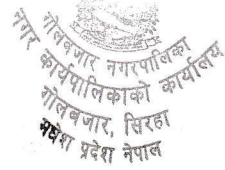 गोलबजार नगरपालिका
नगर कार्यपालिकाको कार्यालय
गोलबजार, सिरहा
मधेश प्रदेश नेपाल